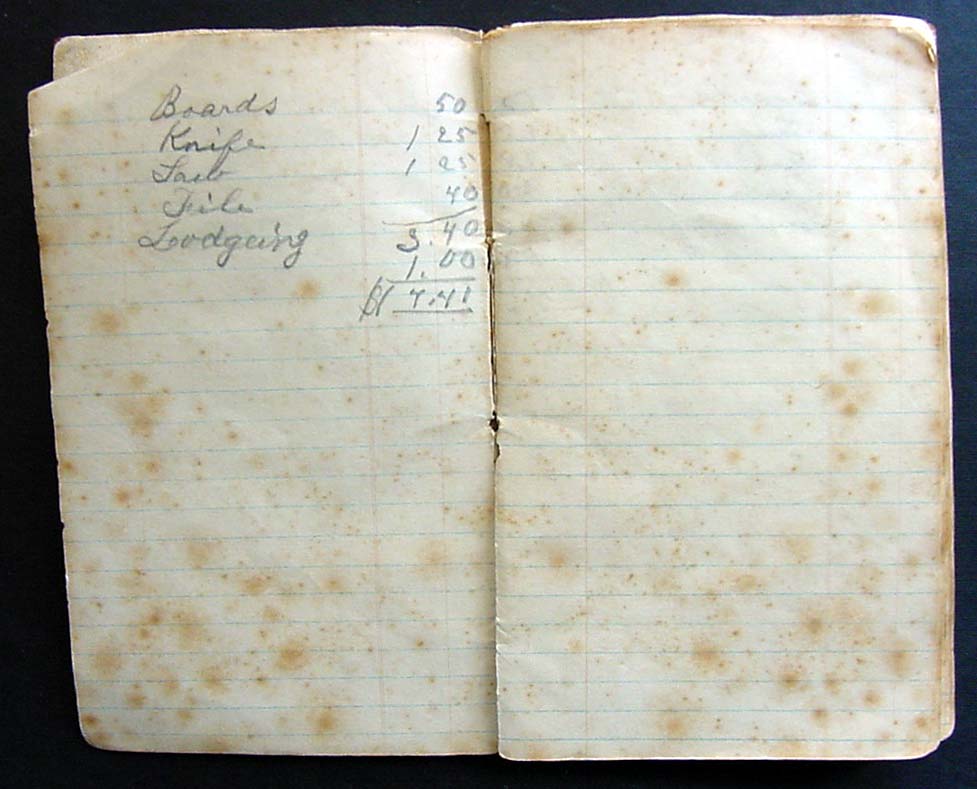 Boards 50
Knife 1 25
Saw 1 25
File 40
3.40
Lodgeing 1.00
$ 4.40